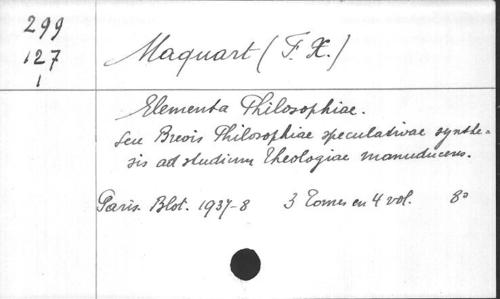 299
127
1
Maquart (F. X.)
Elementa Philosophiae.
seu Brevis Philosophiae speculativae synthe-
sis ad studium Theologiae manuducens.
Paris. Blot. 1937-8 3 Tomes en 4 vol. 8°